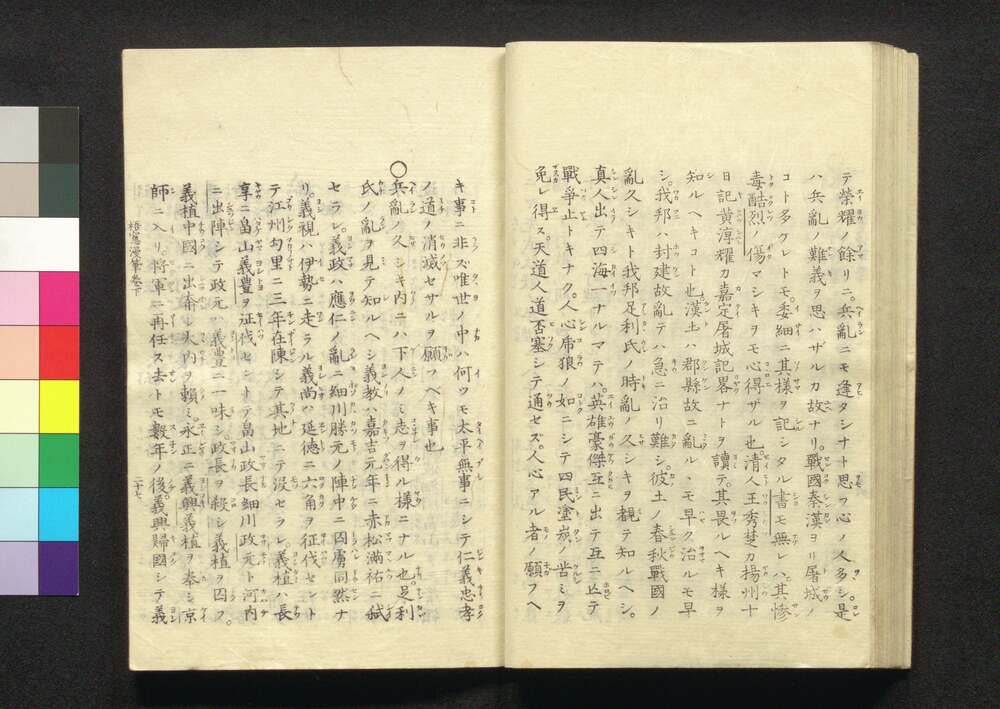 テ榮耀ノ餘リニ。兵亂ニモ逢タシナト思フ心ノ人多シ。是
ハ兵亂ノ難義ヲ思ハザルカ故ナリ。戰國秦漢ヨリ屠城ノ
コト多ケレトモ。委細ニ其様ヲ記シタル書モ無レハ。其慘
毒酷烈ノ傷マシキヲモ心得ザル也。清人王秀楚カ揚州十
日記黄淳耀カ嘉定屠城記畧ナトヲ讀テ。其畏ルヘキ様ヲ
知ルヘキコト也。漢土ハ郡縣故ニ亂ルヽモ早ク治ルモ早
シ。我邦ハ封建故亂テハ急ニ治リ難シ。彼土ノ春秋戰國ノ
亂久シキト我邦足利氏ノ時亂ノ久シキヲ観テ知ルヘシ。
真人出テ四海一ナルマテハ。英雄豪傑互ニ出テ互ニ亾テ
戰爭止トキナク。人心虎狼ノ如ニシテ四民塗炭ノ苦ミヲ
免レ得ス。天道人道否塞シテ通セズ。人心アル者ノ願フヘ
キ事ニ非ズ唯世ノ中ハ何ツモ太平無事ニシテ仁義忠孝
ノ道ノ消滅セサルヲ願フヘキ事也
○兵亂ノ久シキ内ニハ下人ノミ志ヲ得ル様ニナル也。足利
氏ノ亂ヲ見テ知ルヘシ義教ハ嘉吉元年ニ赤松滿祐ニ弑
セラレ。義政ハ應仁ノ亂ニ細川勝元ノ陣中ニ囚虜同然ナ
リ。義視ハ伊勢ニ走ラル義尚ハ延德ニ六角ヲ征伐セント
テ江州勾里ニ三年在陳シテ其地ニテ沒セラレ。義植ハ長
享ニ畠山義豊ヲ征伐セントテ畠山政長細川政元ト河内
ニ出陣シテ政元ハ義豊ニ一味シ。政長ヲ殺シ義植ヲ囚フ。
義植中國ニ出奔シ大内ヲ賴ミ。永正ニ義興義植ヲ奉シ京
師ニ入リ将軍ニ再任ス去トモ數年ノ後。義興歸國シテ義
梧窓漫筆巻下
二十七